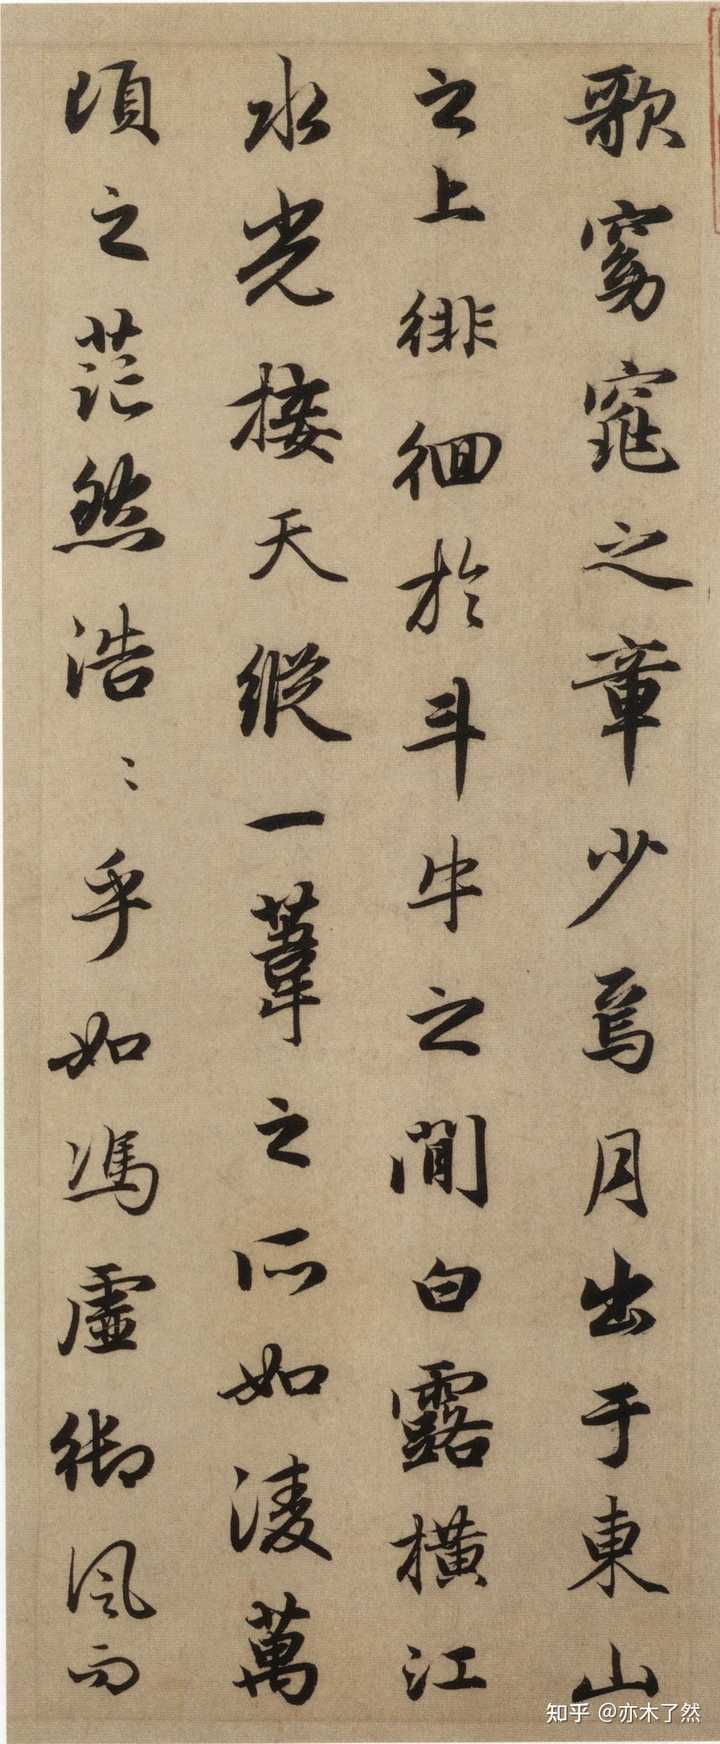 歌窈窕之章少焉月出于東山
之上徘徊於斗牛之間白露橫江
水光接天縱一葦之所如淩萬
頃之茫然浩〻乎如馮虛御風而
知乎 @亦木了然